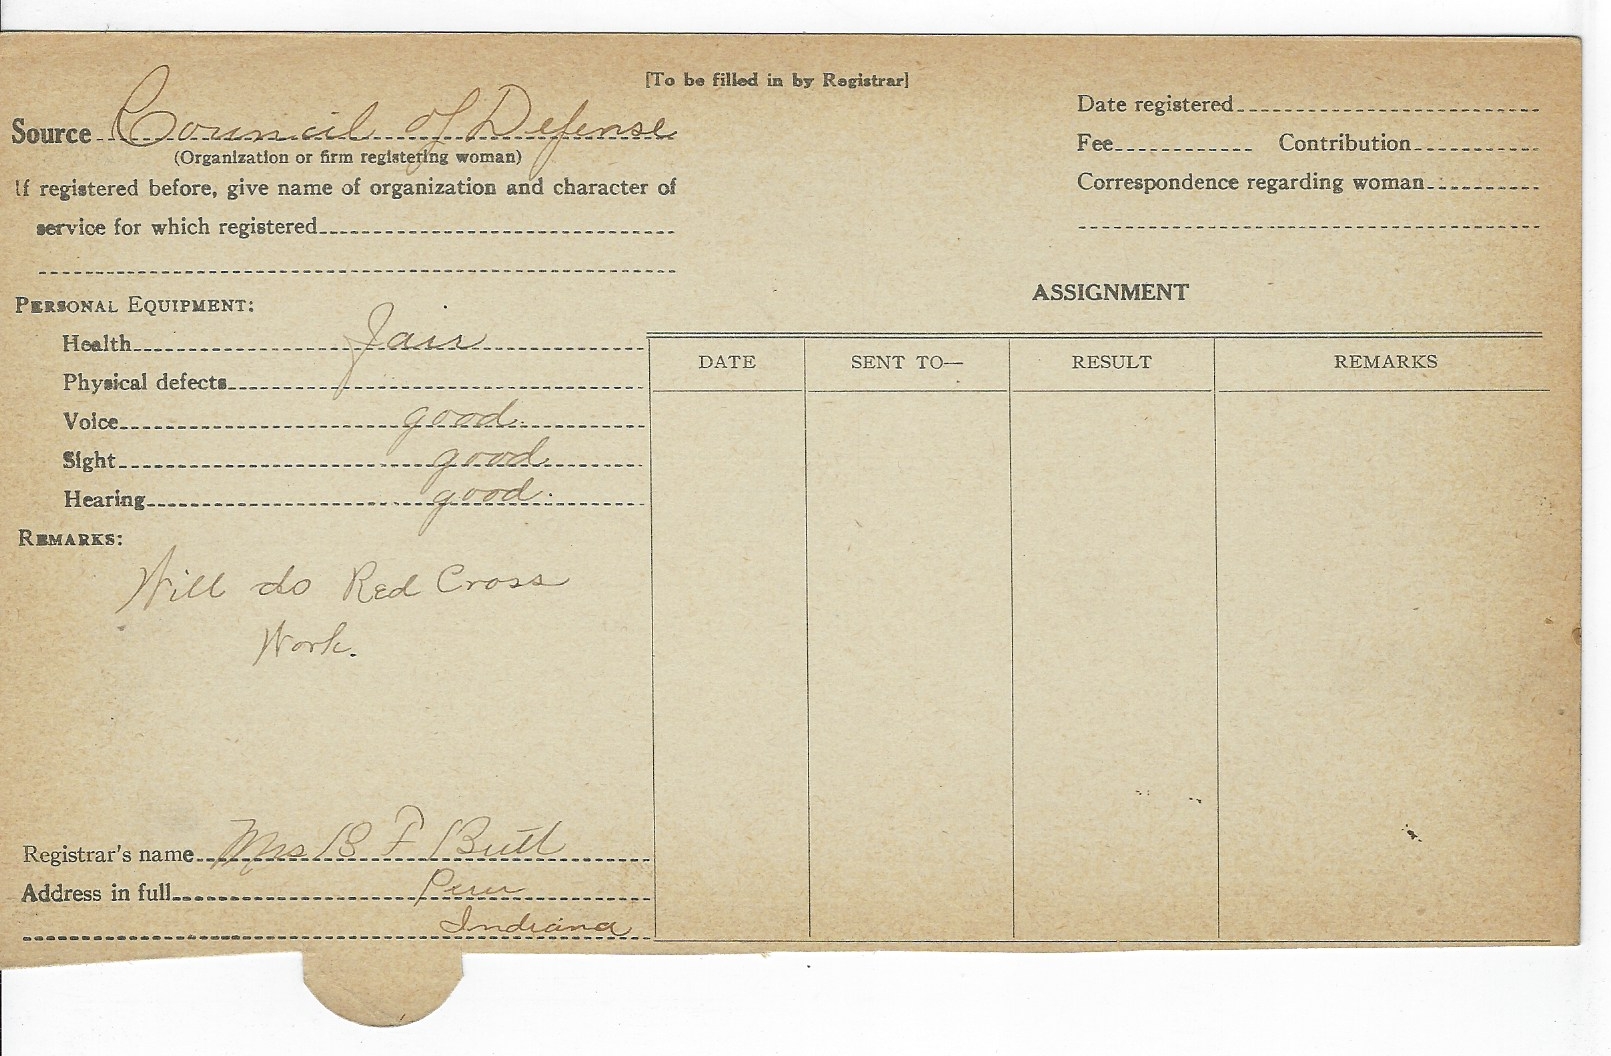 [To be filled in by Registrar]
Source Council of Defense
(Organization or firm registering woman)
If registered before, give name of organization and character of
service for which registered
Date registered
Fee Contribution
Correspondence regarding woman
PERSONAL EQUIPMENT:
Health Fair
Physical defects
Voice good.
Sight good
Hearing good.
REMARKS:
Will do Red Cross
Work.
Registrar's name Mrs B F Butt
Address in full Peru
Indiana
ASSIGNMENT
DATE SENT TO— RESULT REMARKS